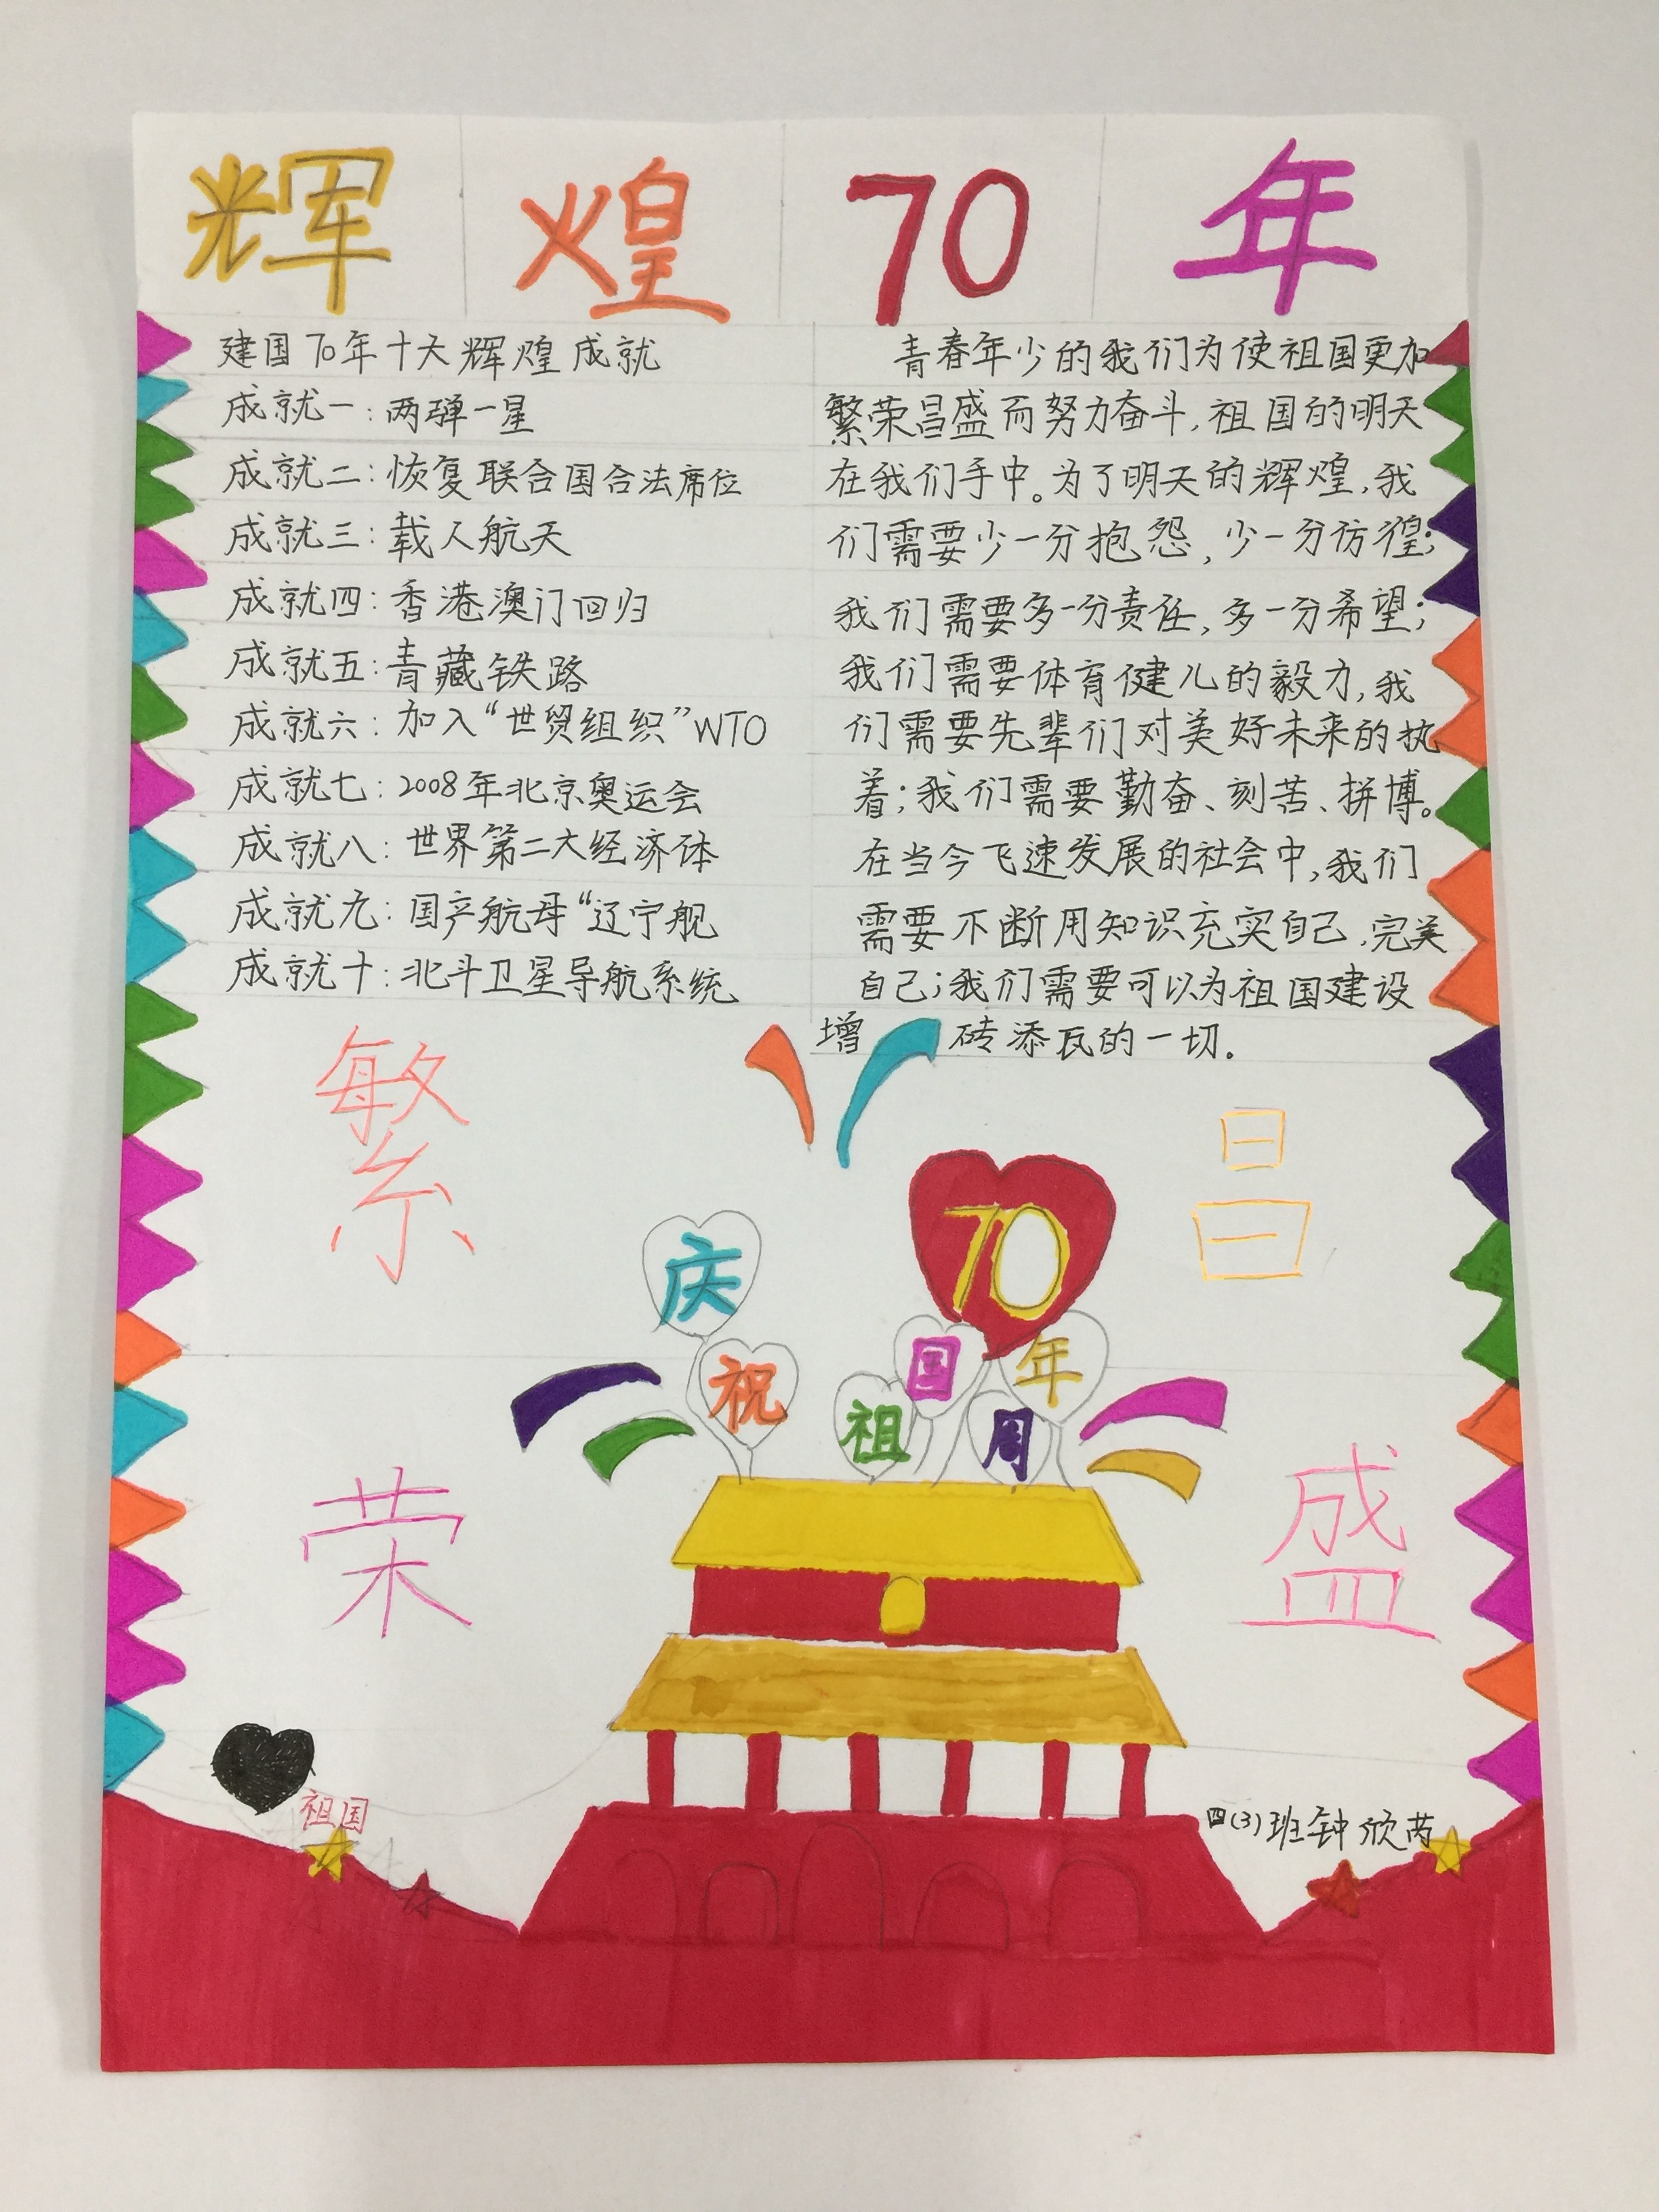 辉煌70年
建国70年十大辉煌成就
成就一：两弹一星
成就二：恢复联合国合法席位
成就三：载人航天
成就四：香港澳门回归
成就五：青藏铁路
成就六：加入“世贸组织”WTO
成就七：2008年北京奥运会
成就八：世界第二大经济体
成就九：国产航母“辽宁舰
成就十：北斗卫星导航系统
青春年少的我们为使祖国更加
繁荣昌盛而努力奋斗，祖国的明天
在我们手中。为了明天的辉煌，我
们需要少一分抱怨，少一分彷徨；
我们需要多一分责任，多一分希望；
我们需要体育健儿的毅力，我
们需要先辈们对美好未来的执
着；我们需要勤奋、刻苦、拼博。
在当今飞速发展的社会中，我们
需要不断用知识充实自己，完美
自己；我们需要可以为祖国建设
增砖添瓦的一切。
繁
荣
昌
盛
庆
祝
祖
国
70
周
年
祖国
四(3)班钟欣芮